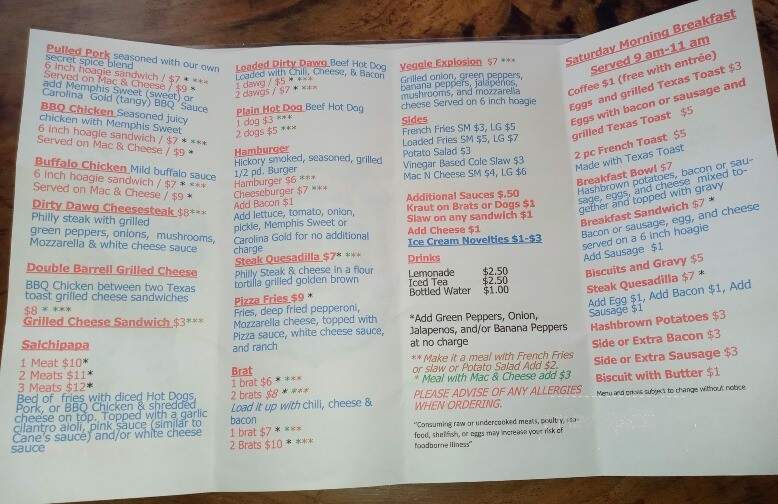 Pulled Pork seasoned with our own
secret spice blend
6 inch hoagie sandwich / $7 * ***
Served on Mac & Cheese / $9 *
add Memphis Sweet (sweet) or
Carolina Gold (tangy) BBQ Sauce
BBQ Chicken Seasoned juicy
chicken with Memphis Sweet
6 inch hoagie sandwich / $7 * ***
Served on Mac & Cheese / $9 *
Buffalo Chicken Mild buffalo sauce
6 inch hoagie sandwich / $7 * ***
Served on Mac & Cheese / $9 *
Dirty Dawg Cheesesteak $8***
Philly steak with grilled
green peppers, onions, mushrooms,
Mozzarella & white cheese sauce
Double Barrell Grilled Cheese
BBQ Chicken between two Texas
toast grilled cheese sandwiches
$8 * ***
Grilled Cheese Sandwich $3***
Salchipapa
1 Meat $10*
2 Meats $11*
3 Meats $12*
Bed of fries with diced Hot Dogs,
Pork, or BBQ Chicken & shredded
cheese on top. Topped with a garlic
cilantro aioli, pink sauce (similar to
Cane's sauce) and/or white cheese
sauce
Loaded Dirty Dawg Beef Hot Dog
Loaded with Chili, Cheese, & Bacon
1 dawg / $5 * ***
2 dawgs / $7 * ***
Plain Hot Dog Beef Hot Dog
1 dog $3 ***
2 dogs $5 ***
Hamburger
Hickory smoked, seasoned, grilled
1/2 pd. Burger
Hamburger $6 ***
Cheeseburger $7 ***
Add Bacon $1
Add lettuce, tomato, onion,
pickle, Memphis Sweet or
Carolina Gold for no additional
charge
Steak Quesadilla $7* ***
Philly Steak & cheese in a flour
tortilla grilled golden brown
Pizza Fries $9 *
Fries, deep fried pepperoni,
Mozzarella cheese, topped with
Pizza sauce, white cheese sauce,
and ranch
Brat
1 brat $6 * ***
2 brats $8 * ***
Load it up with chili, cheese &
bacon
1 brat $7 * ***
2 Brats $10 * ***
Veggie Explosion $7 ***
Grilled onion, green peppers,
banana peppers, jalapenos,
mushrooms, and mozzarella
cheese Served on 6 inch hoagie
Sides
French Fries SM $3, LG $5
Loaded Fries SM $5, LG $7
Potato Salad $3
Vinegar Based Cole Slaw $3
Mac N Cheese SM $4, LG $6
Additional Sauces $.50
Kraut on Brats or Dogs $1
Slaw on any sandwich $1
Add Cheese $1
Ice Cream Novelties $1-$3
Drinks
Lemonade $2.50
Iced Tea $2.50
Bottled Water $1.00
*Add Green Peppers, Onion,
Jalapenos, and/or Banana Peppers
at no charge
**Make it a meal with French Fries
or slaw or Potato Salad Add $2.
* Meal with Mac & Cheese add $3
PLEASE ADVISE OF ANY ALLERGIES
WHEN ORDERING.
"Consuming raw or undercooked meats, poultry, sea-
food, shellfish, or eggs may increase your risk of
foodborne illness"
Saturday Morning Breakfast
Served 9 am-11 am
Coffee $1 (free with entrée)
Eggs and grilled Texas Toast $3
Eggs with bacon or sausage and
grilled Texas Toast $5
2 pc French Toast $5
Made with Texas Toast
Breakfast Bowl $7
Hashbrown potatoes, bacon or sau-
sage, eggs, and cheese mixed to-
gether and topped with gravy
Breakfast Sandwich $7 *
Bacon or sausage, egg, and cheese
served on a 6 inch hoagie
Add Sausage $1
Biscuits and Gravy $5
Steak Quesadilla $7 *
Add Egg $1, Add Bacon $1, Add
Sausage $1
Hashbrown Potatoes $3
Side or Extra Bacon $3
Side or Extra Sausage $3
Biscuit with Butter $1
Menu and prices subject to change without notice